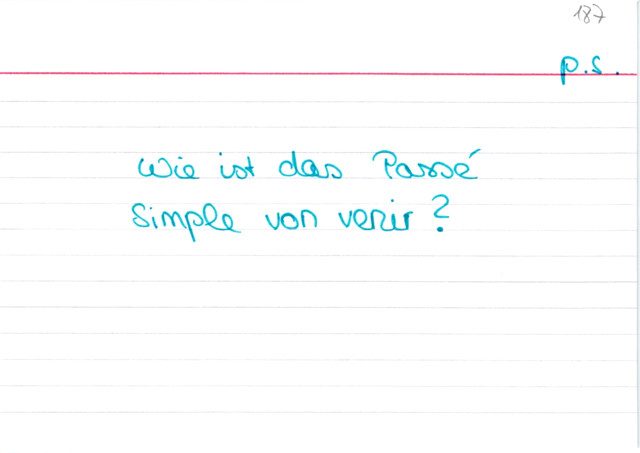 187
p.s.
Wie ist das Passé
simple von venir?